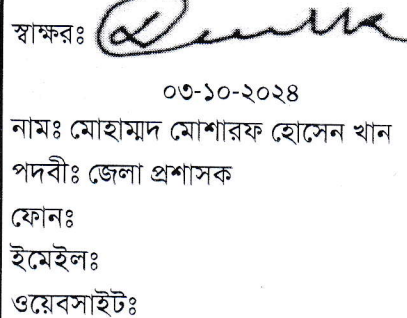 স্বাক্ষরঃ
০৩-১০-২০২৪
নামঃ মোহাম্মদ মোশারফ হোসেন খান
পদবীঃ জেলা প্রশাসক
ফোনঃ
ইমেইলঃ
ওয়েবসাইটঃ